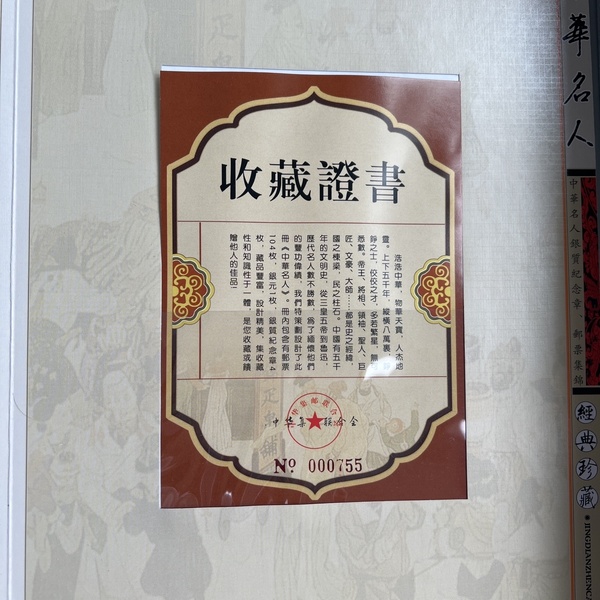 收藏證書
浩浩中華，物華天寶，人杰地
靈。上下五千年，縱橫八萬裏，錚
錚之士，佼佼之才，多若繁星，難
悉數。帝王、將相、領袖、聖人、巨
匠、文豪、大師……都是史之經緯，
國之棟梁，民之柱石。中國有五千
年的文明史，從三皇五帝到魯迅，
歷代名人數不勝數，爲了緬懷他們
的豐功偉績，我們特策劃設計了此
冊《中華名人》。冊內包含有郵票
104枚，銀元1枚，銀質紀念章4
枚，藏品豐富，設計精美，集收藏
性和知識性于一體，是您收藏或饋
贈他人的佳品。
中华集 联合会
Nº 000755
華名人
中華名人銀質紀念章、郵票集錦
經典珍藏
JINGDIANZHENG